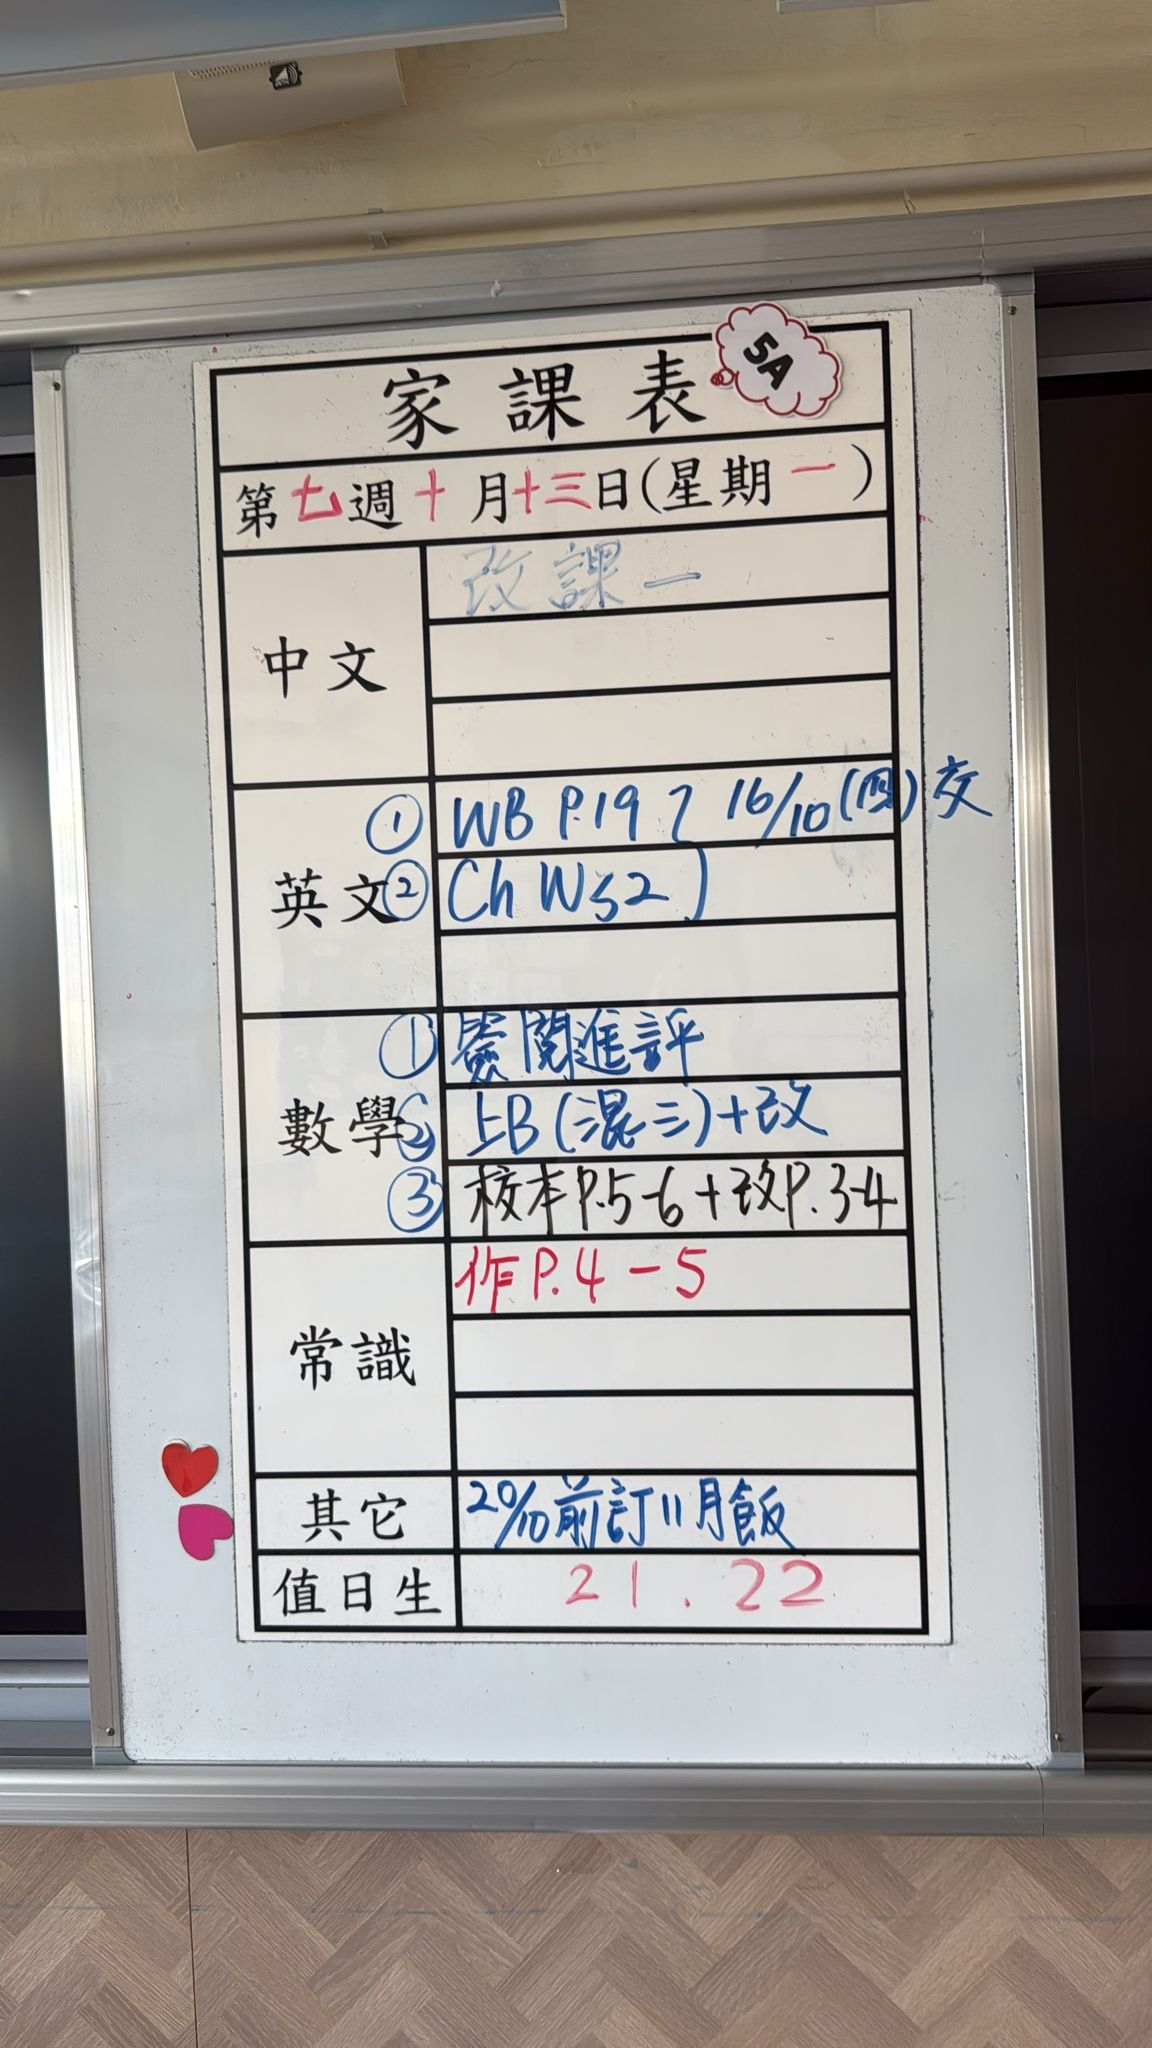 家課表 5A
第七週十月十三日(星期一)
中文
改課一
英文
① WB P.19 } 16/10(四)交
② Ch WS2
數學
① 簽閱進評
② 上B(混三)+改
③ 校本P.5-6+改P.3-4
常識
作P.4-5
其它
20/10前訂11月飯
值日生
21.22